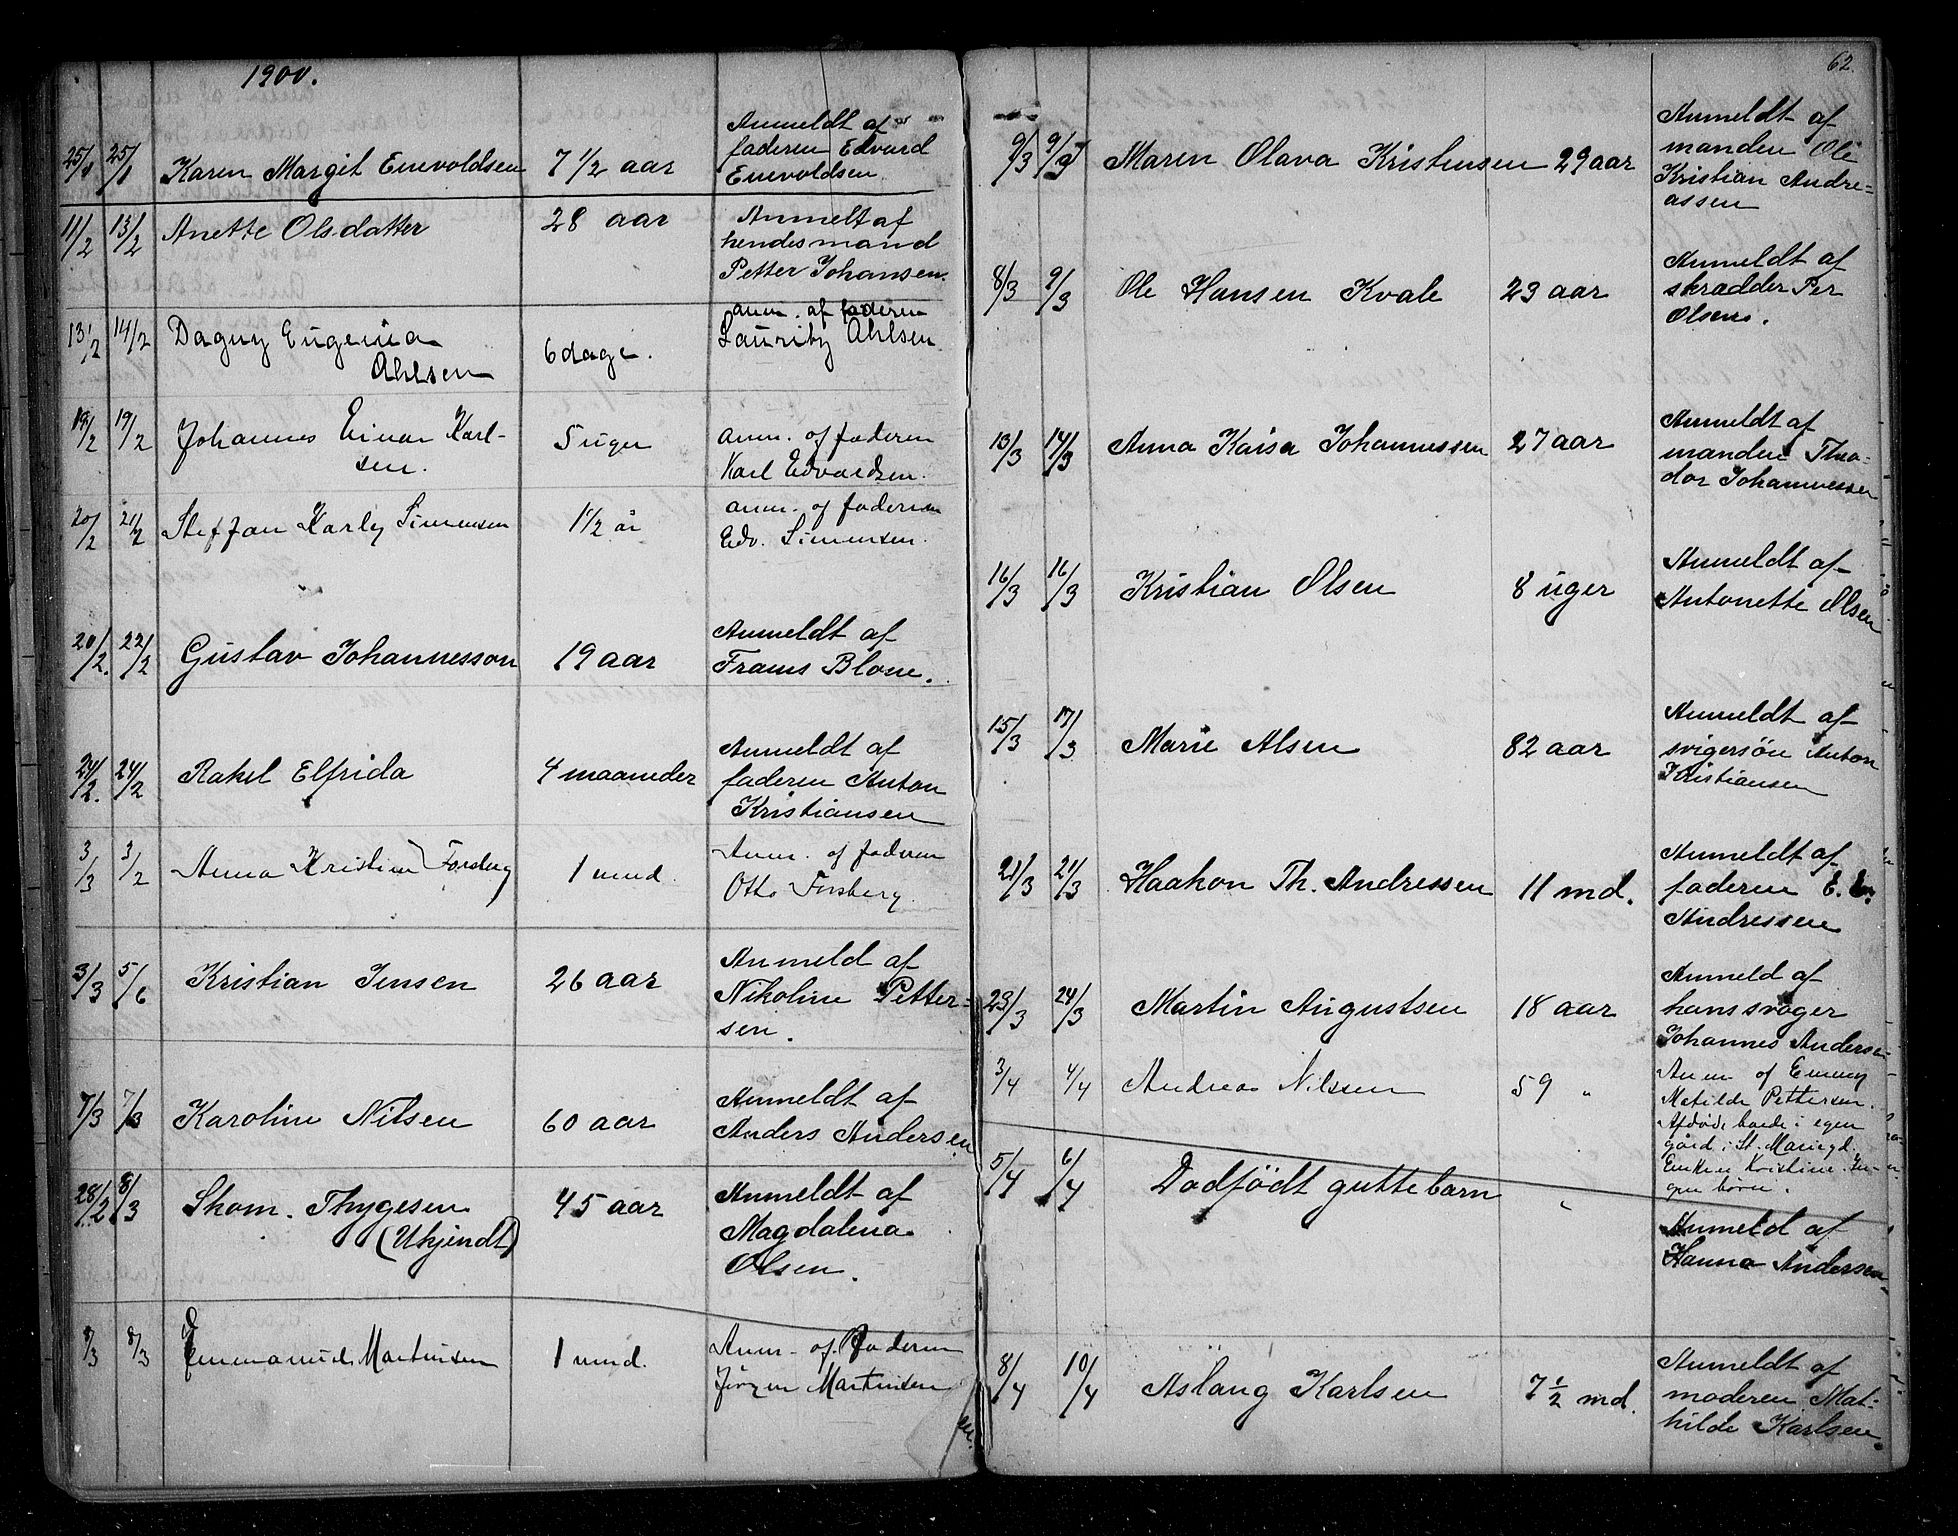 1900.
25/1 25/1 Karen Margit Enevoldsen 7 1/2 aar Anmeldt af
faderen Edvard
Enevoldsen.
11/2 13/2 Anette Olsdatter 28 aar Anmelt af
hendes mand
Petter Johansen.
13/2 14/2 Dagny Eugenia
Ahlsen 6 dage. anm. af faderen
Lauritz Ahlsen
19/2 19/2 Johannes Einar Karl-
sen. 5 uger anm. af faderen
Karl Edvardsen.
20/2 21/2 Steffan Karly Simensen 1 1/2 år anm. af faderen
Edv. Simensen.
20/2. 22/2 Gustav Johannesson 19 aar Anmeldt af
Frans Blom.
24/2. 24/2 Rakel Elfrida 4 maaneder Anmeldt af
faderen Anton
Kristiansen
3/3 3/2 Anna Kristine Forsberg 1 mnd. Anm. af faderen
Otto Forsberg.
3/3 5/6 Kristian Jensen 26 aar Anmeld af
Nikoline Petter-
sen.
7/3 7/3 Karoline Nilsen 60 aar Anmeldt af
Anders Andersen
28/2 8/3 Skom. Thygesen
(Ukjendt) 45 aar Anmeldt af
Magdalena
Olsen.
8/3 8/3 Emmanuel Martinsen 1 mnd. Anm. af faderen
Jörgen Martinsen
62.
9/3 9/3 Maren Olava Kristensen 29 aar Anmeldt af
manden Ole
Kristian Andre=
assen
8/3 9/3 Ole Hansen Kvale 23 aar Anmeldt af
skrædder Per
Olsen.
13/3 14/3 Anna Kaisa Johannessen 27 aar Anmeldt af
manden Theo-
dor Johannessen
16/3 16/3 Kristian Olsen 8 uger Anmeldt af
Antonette Olsen
15/3 17/3 Marie Alsen 82 aar Anmeldt af
svigersön Anton
Kristiansen
21/3 21/3 Haakon Th. Andressen 11 md. Anmeldt af
faderen E.
Andressen
23/3 24/3 Martin Augustsen 18 aar Anmeld af
hans svoger
Johannes Anderse-
3/4 4/4 Andrea Nilssen 59 " Anm af Emmy
Matilde Pettersen.
Afdöde boede i egen
gård i St. Mariegd.
Enken Kristine. In-
gen börn.
5/4 6/4 Dodfödt guttebarn " Anmeld af
Hanna Andersen
8/4 10/4 Aslaug Karlsen 7 1/2 md. Anmeldt af
moderen Mat-
hilde Karlsen.